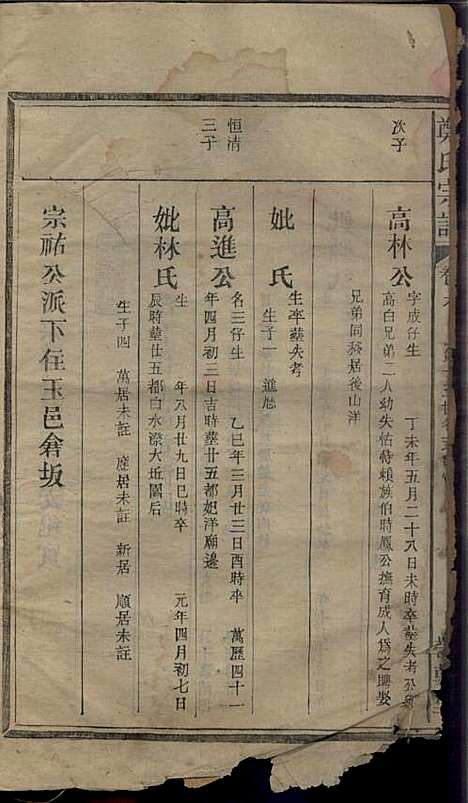 鄭氏宗譜
次子
高林公
字成仔生　丁未年五月二十八日未時卒塟失考公與
高白兄弟二人幼失怙特賴族伯時鳳公撫育成人為之聘娶
兄弟同移居後山洋
妣　氏
生卒塟失考
生子一　進㞧
恒清
三子
高進公
名三仔生　乙巳年三月廿三日酉時卒　萬歷四十一
年四月初二日吉時塟廿五都妃洋廟邊
妣林氏
生　年八月廿九日巳時卒　元年四月初七日
辰時塟廿五都白水漈大坵園后
生子四　萬居未註　應居未註　新居　順居未註
宗祐公派下住玉邑倉坂